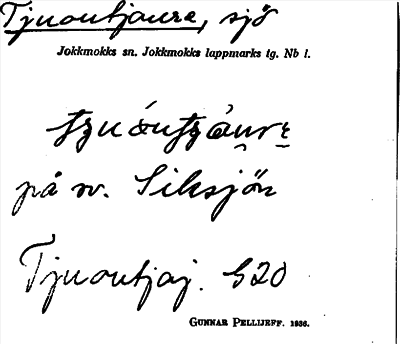 Tjuoutjaure, sjö
Jokkmokks sn. Jokkmokks lappmarks tg. Nb l.
på sv. Siksjön
Tjuoutjaj. G20
GUNNAR PELLIJEFF. 1956.